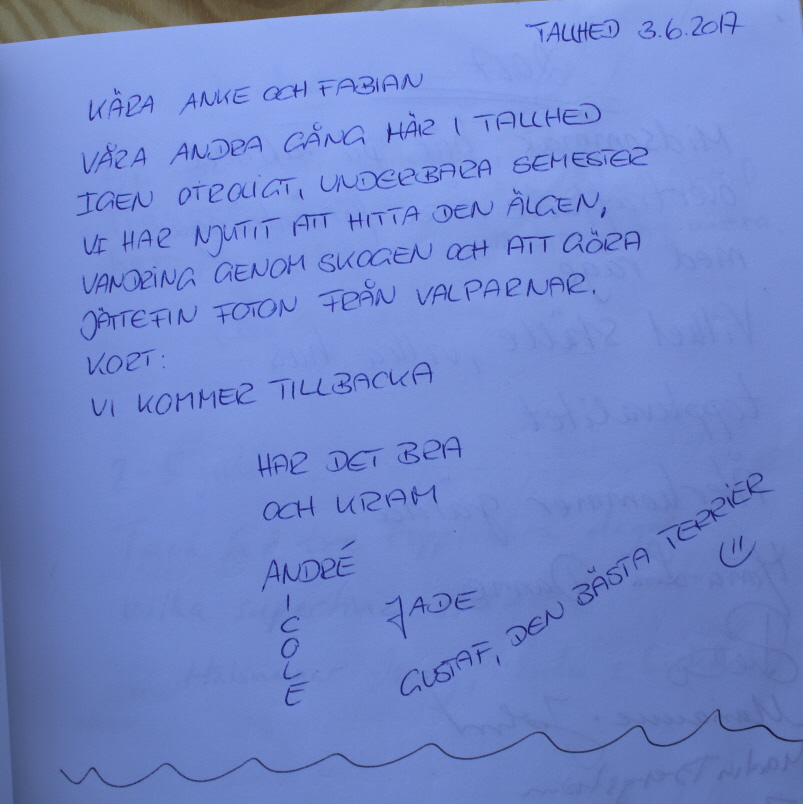 TALLHED 3.6.2017
KÄRA ANKE OCH FABIAN
VÅRA ANDRA GÅNG HÄR I TALLHED
IGEN OTROLIGT, UNDERBARA SEMESTER
VI HAR NJUTIT ATT HITTA DEN ÄLGEN,
VANDRING GENOM SKOGEN OCH ATT GÖRA
JÄTTEFIN FOTON FRÅN VALPARNAR.
KORT:
VI KOMMER TILLBACKA
HAR DET BRA
OCH KRAM
ANDRÉ
I
C
O
L
E
JADE
GUSTAF, DEN BÄSTA TERRIER